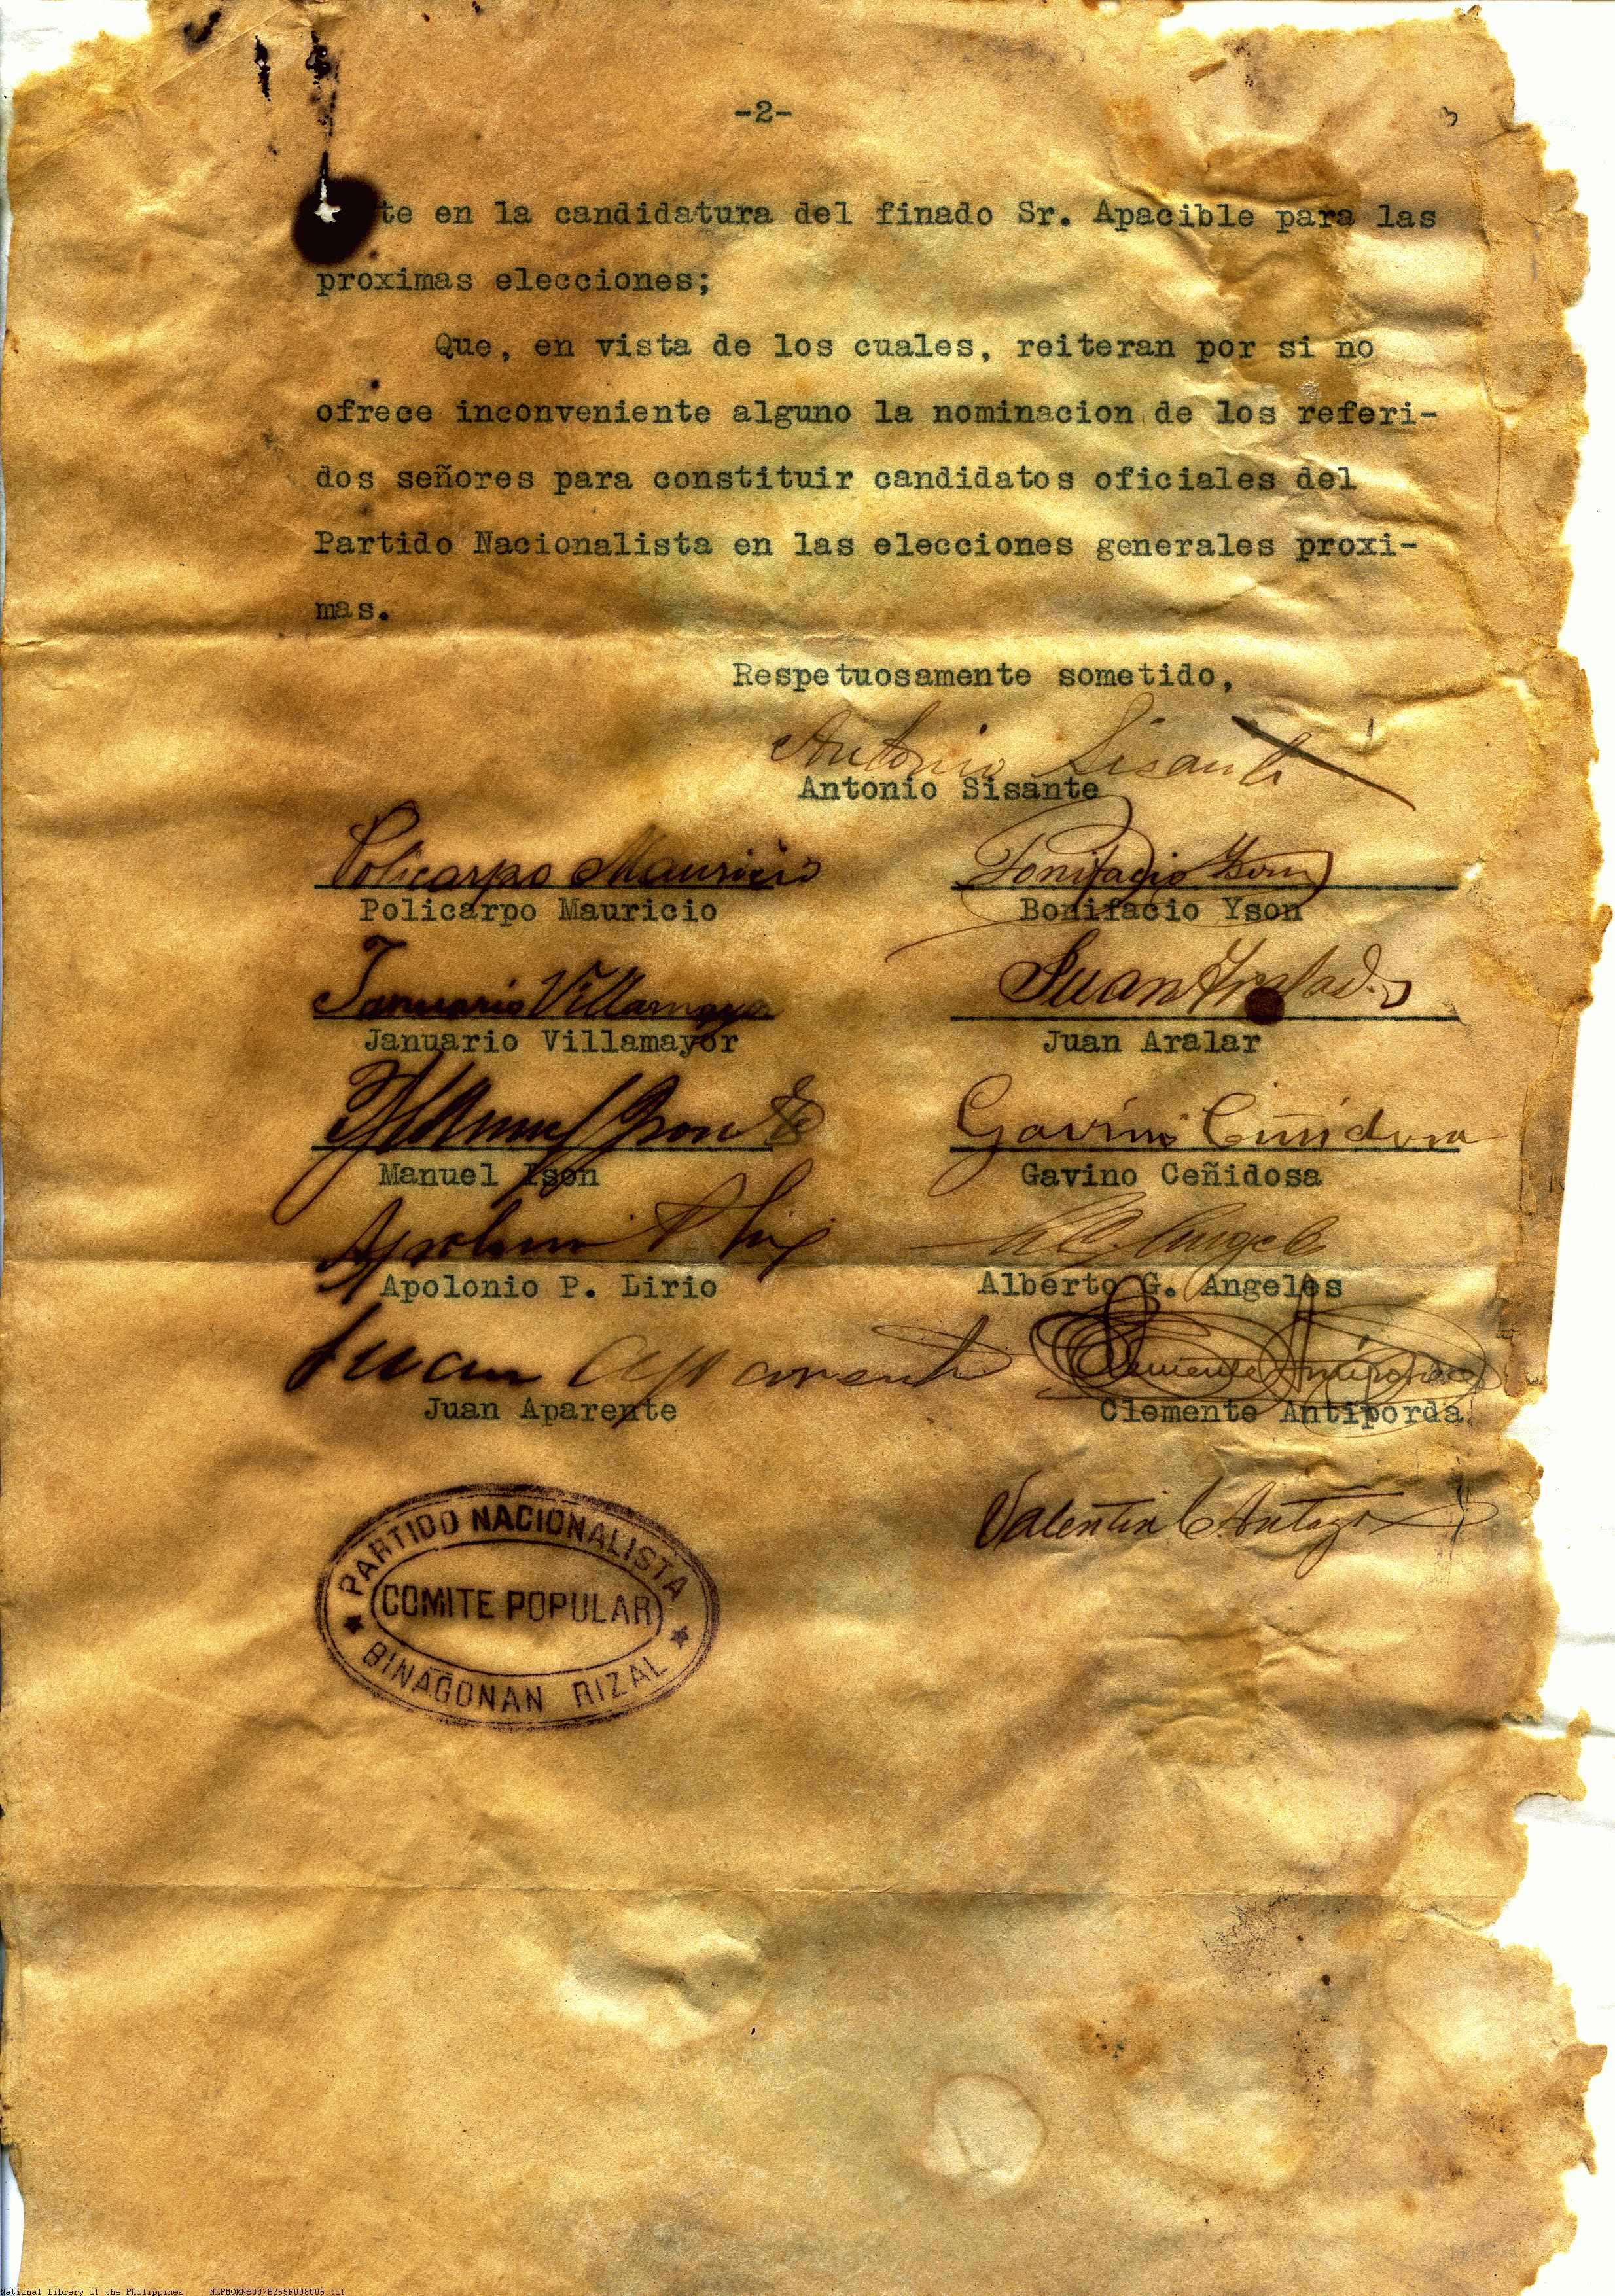 -2-
3
te en la candidatura del finado Sr. Apacible para las
proximas elecciones;
Que, en vista de los cuales, reiteran por si no
ofrece inconveniente alguno la nominacion de los referi-
dos señores para constituir candidatos oficiales del
Partido Nacionalista en las elecciones generales proxi-
mas.
Respetuosamente sometido,
Antonio Sisante
Antonio Sisante
Policarpo Mauricio Bonifacio Yson
Policarpo Mauricio Bonifacio Yson
Januario Villamayor Juan
Januario Villamayor Juan Aralar
Manuel Gavino Ceñidosa
Manuel Ison Gavino Ceñidosa
Apolonio P. A.G. Angeles
Apolonio P. Lirio Alberto G. Angeles
Juan Aparente Clemente Antiporda
Juan Aparente Clemente Antiporda
Valentin C.
PARTIDO NACIONALISTA
COMITE POPULAR
BINAGONAN RIZAL
National Library of the Philippines NLPMQMNS007B255F008005.tif